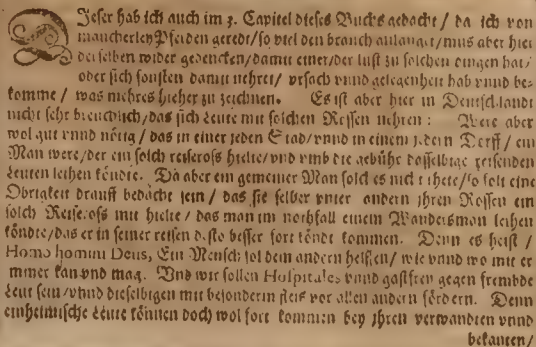 Dieser hab ich auch im 3. Capitel dieses Buchs gedacht / da ich von
mancherley Pferden geredt / so viel den brauch anlanget / mus aber hie
derselben wider gedencken / damit einer / der lust zu solchen dingen hat /
oder sich sonsten damit nehret / ursach vnnd gelegenheit hab vnnd be-
komme / was mehres hieher zu zeichnen. Es ist aber hier in Deutschlandt
nicht sehr breuchlich / das sich Leute mit solchen Rossen nehren: Were aber
wol gut vnnd nötig / das in einer jeden Stad / vnnd in einem jedem Dorff / ein
Man were / der ein solch reiseross hielte / vnnd vmb die gebühr dasselbige reisenden
Leuten leihen köndte. Da aber ein gemeiner Man solchs nicht thete / so solt eine
Obrigkeit drauff bedacht sein / das sie selber vnter andern ihren Rossen ein
solch Reiseross mit hielte / das man im nothfall einem Wandersman leihen
köndte / das er in seiner reisen desto besser fort köndt kommen. Denn es heist /
Homo homini Deus, Ein Mensch sol dem andern helffen / wie vnnd wo mit er
immer kan vnd mag. Vnd wir sollen Hospitales vnnd gastfrey gegen frembde
Leut sein / vnnd dieselbigen mit besonderm fleis vor allen andern fördern. Denn
einheimische Leute können doch wol fort kommen bey ihren verwandten vnnd
bekanten /